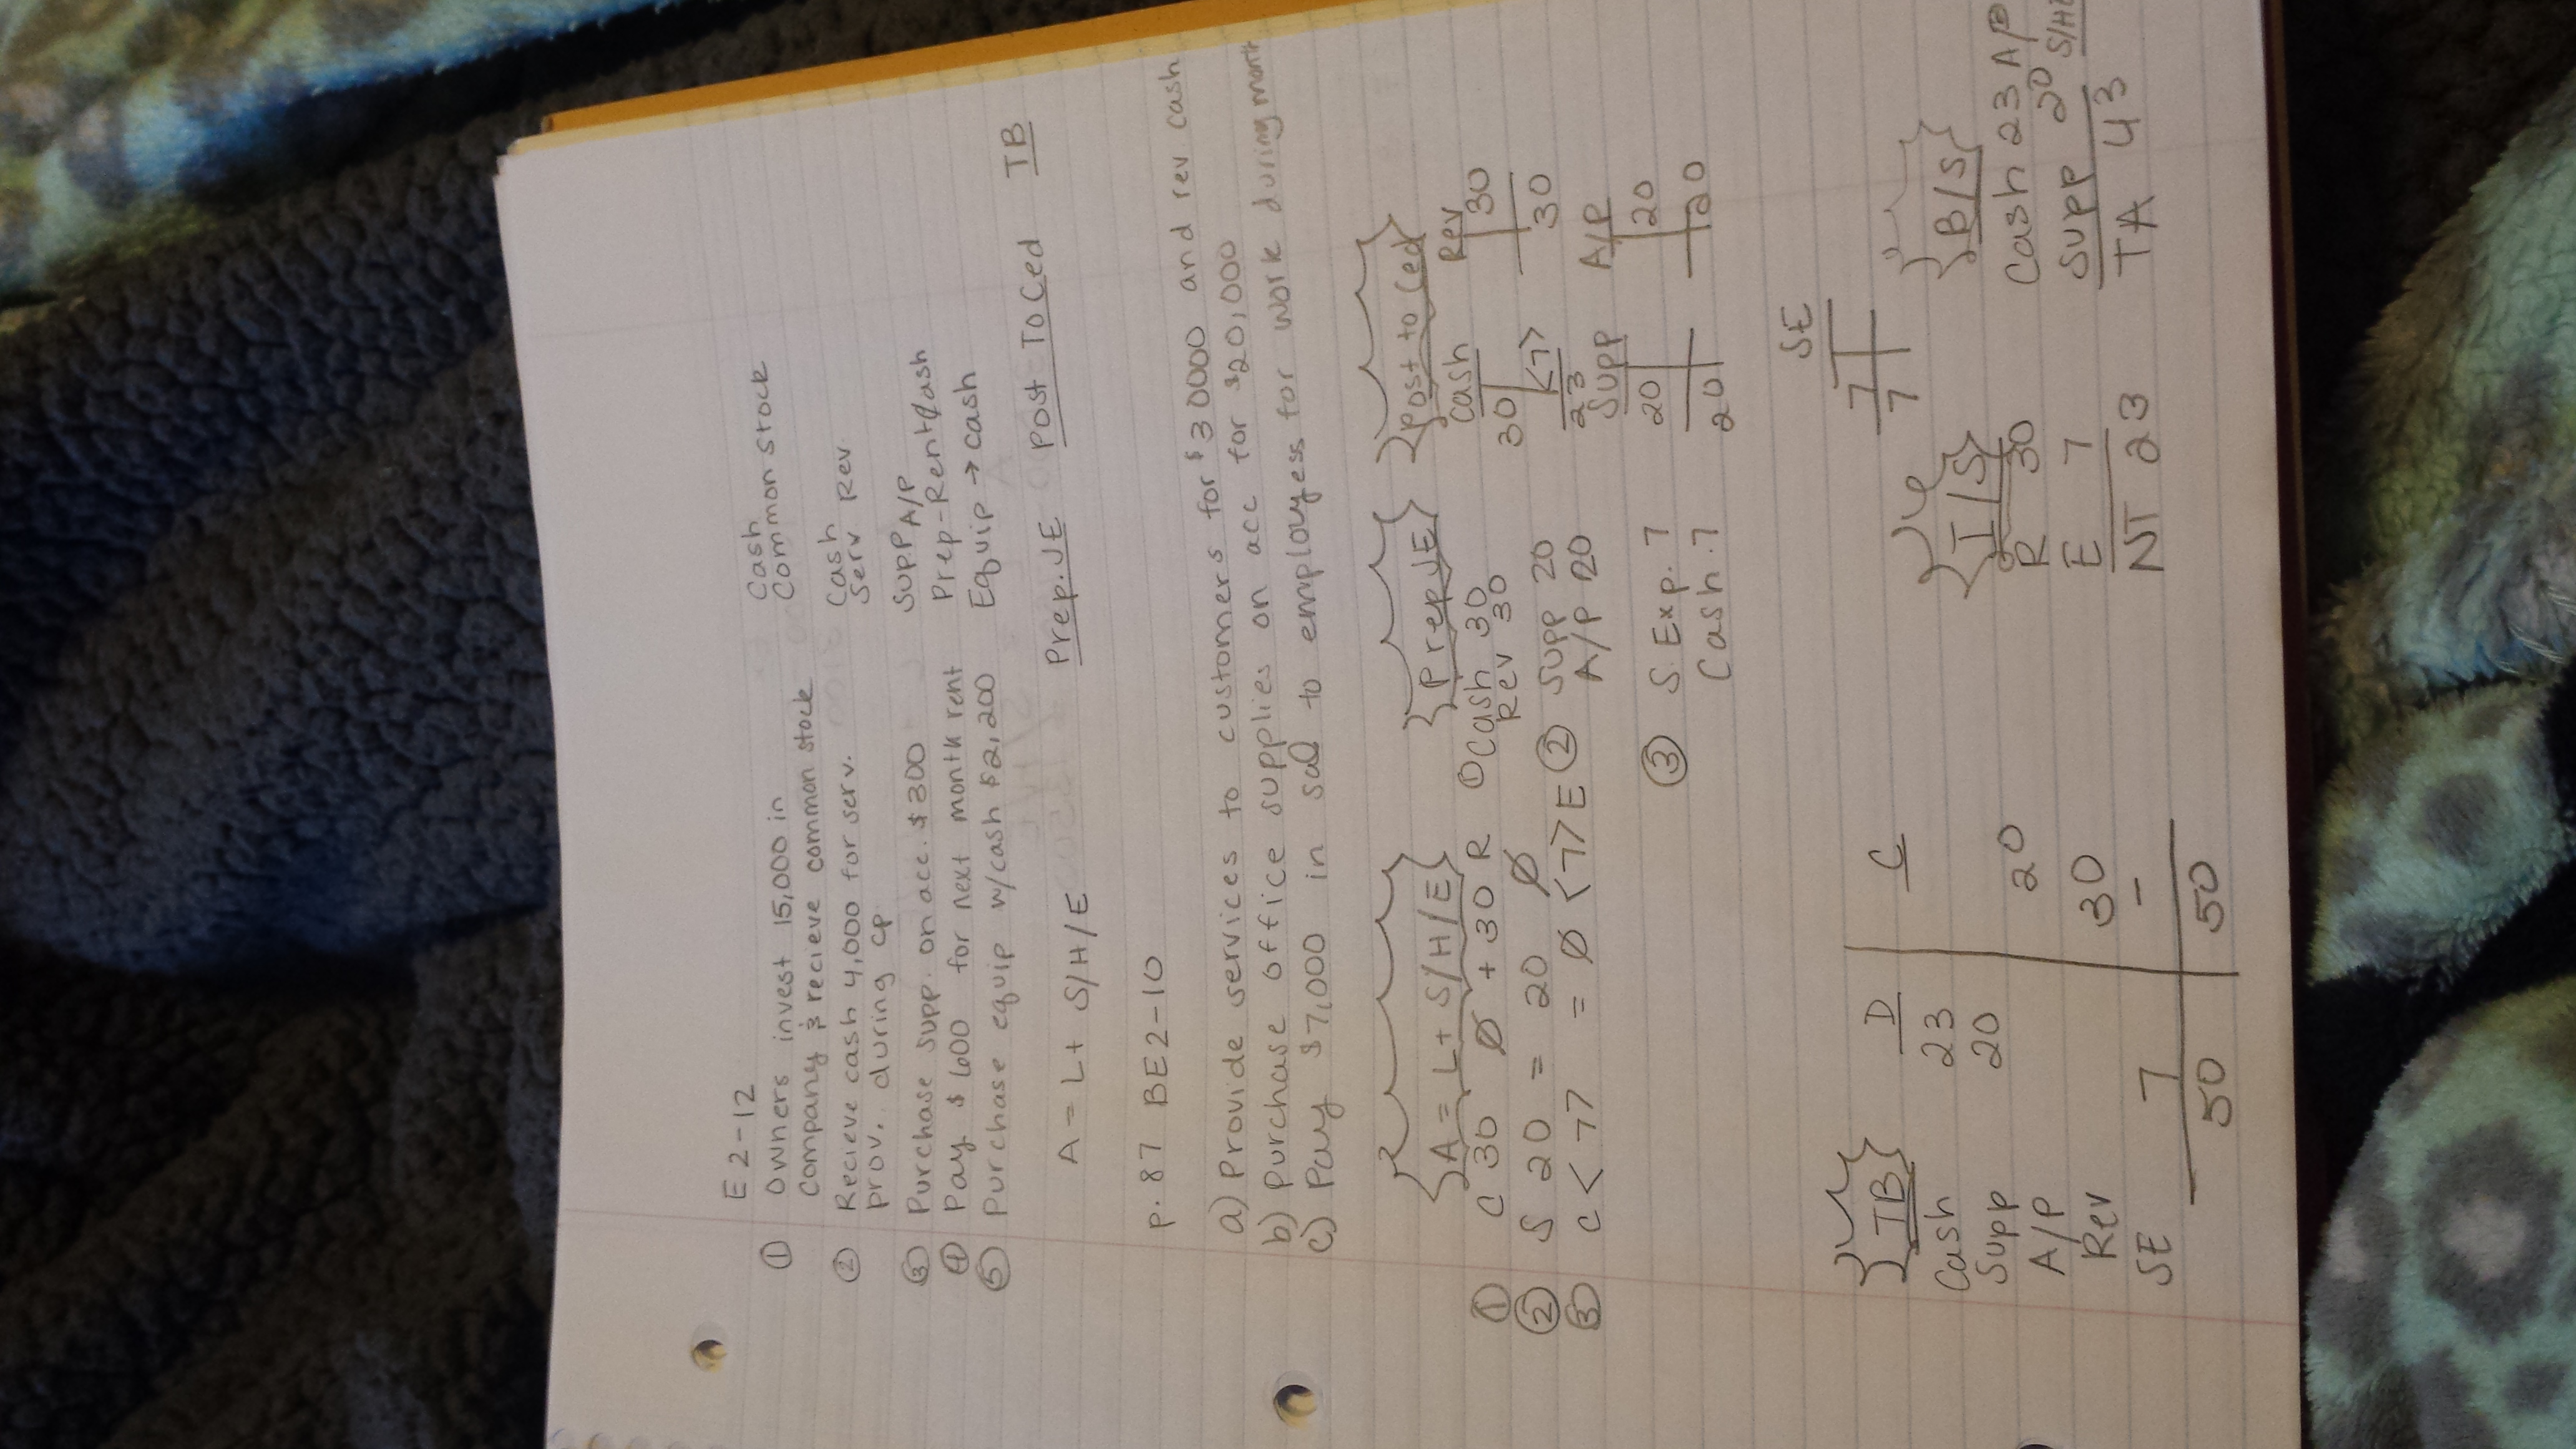 E 2-12
① Owners invest 15,000 in Cash
company & recieve common stock Common stock
② Recieve cash 4,000 for serv. Cash
prov. during cp Serv Rev.
③ Purchase supp. on acc. $300 Supp A/P
④ Pay $600 for next month rent Prep-Rent/cash
⑤ Purchase equip w/cash $2,200 Equip → cash
A = L + S/H/E Prep.JE Post To Led TB
p. 87 BE2-10
a) Provide services to customers for $30000 and rev. cash
b) Purchase office supplies on acc for $20,000
c) Pay $7,000 in sal to employess for work during month
A = L + S/H/E Prep JE Post to Led
① C 30 Ø + 30 R ① Cash 30 Cash Rev
Rev 30 30 30
② S 20 = 20 Ø ② Supp 20 <7> 30
A/P 20 23
③ C <7> = Ø <7> E Supp A/P
20 20
③ S. Exp. 7 20 20
Cash. 7
SE
7
7
TB D C I/S B/S
Cash 23 R 30 Cash 23 A/P
Supp 20 E 7 Supp 20 S/HE
A/P 20 NI 23 TA 43
Rev 30
SE 7 -
50 50